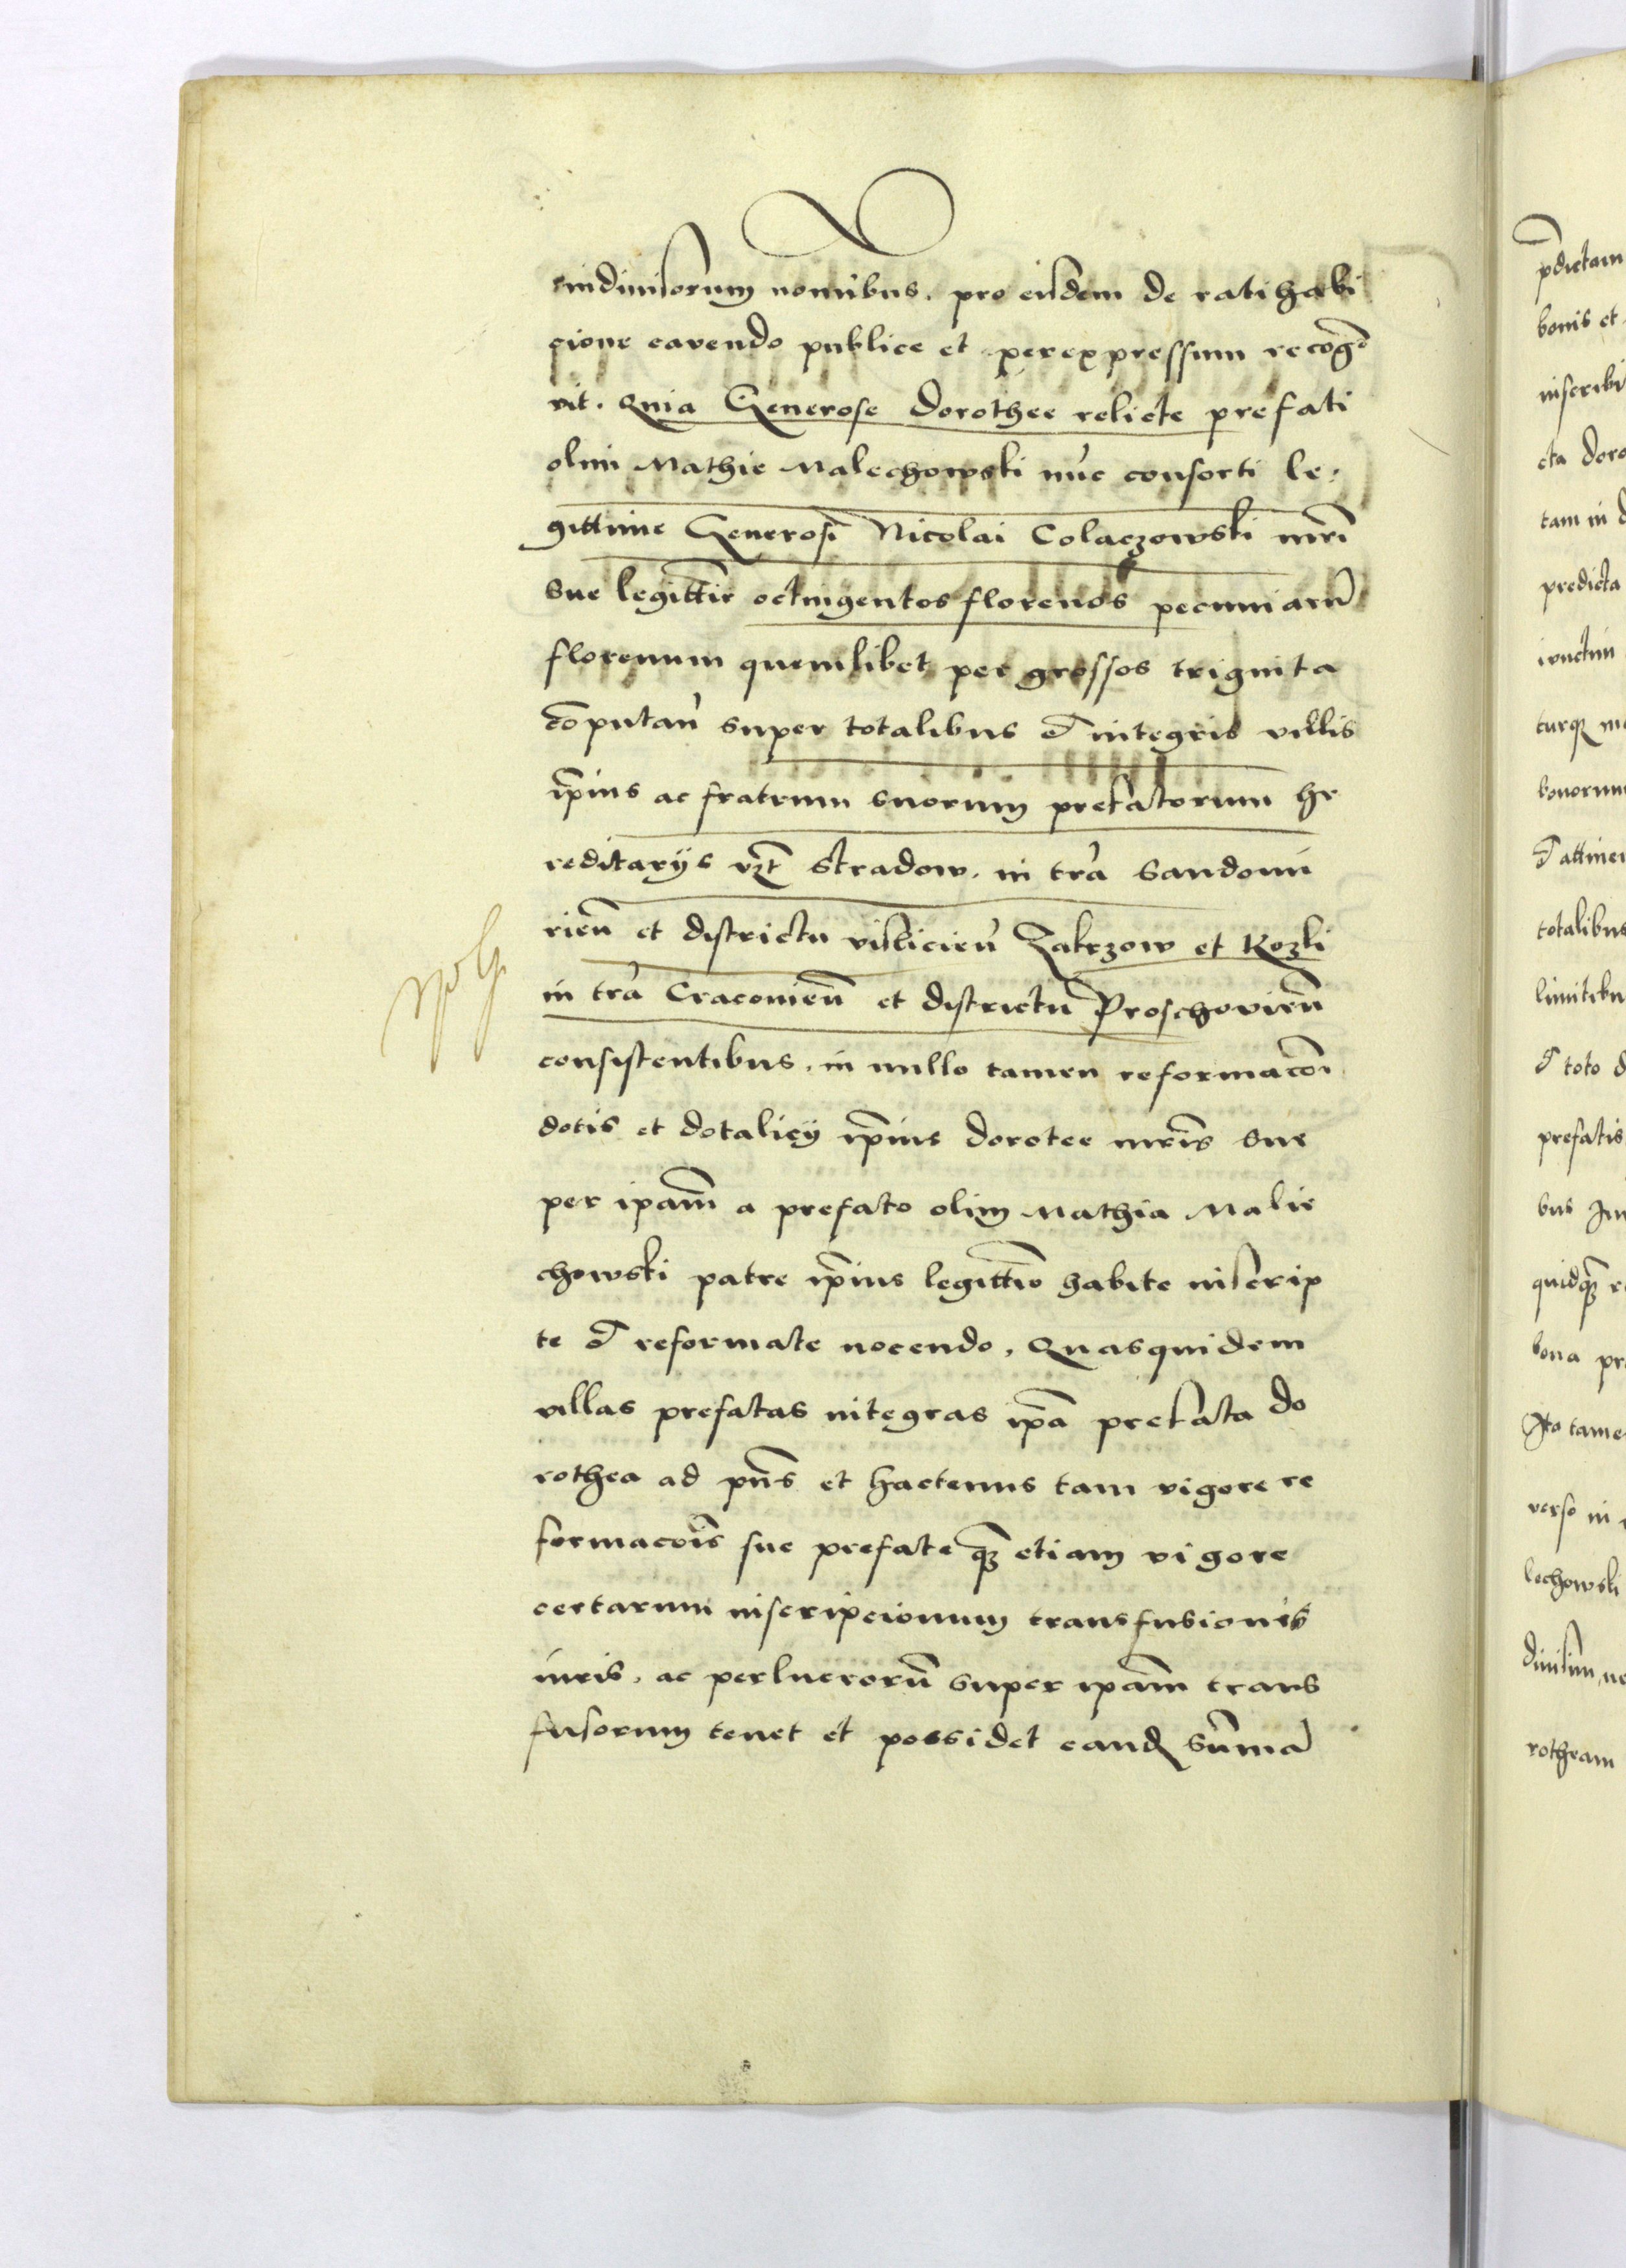 indiuisorum nominibus. pro eisdem de ratihabi
cione cavendo publice et per expressum recog
vit. Quia Generose Dorothee relicte prefati
olim Mathie Malechowski nuc consorti le-
gittime Generosi Nicolai Colaczowski mri
sue legittie octingentos florenos pecuniaru
florenum quemlibet per grossos triginta
coputan super totalibus et integris villis
ipius ac fratrum suorum prefatorum he
reditarys vzt Stradow. in tra Sandomi
rien et districtu vislicien Zakrzow et Kozki
in tra Cracovien et districtu Proschovien
consistentibus. in nullo tamen reformacoi
dotis et dotalicy ipius Dorotee mris sue
per ipam a prefato olim Mathia Malie
chowski patre ipius legittio habite inscrip
te et reformate nocendo. Quasquidem
villas prefatas integras ipa prefata do
rothea ad pns et hactenus tam vigore re
formacois sue prefate qz etiam vigore
certarum inscripcionum transfusionis
iuris. ac perlucrorum super ipam trans
fusorum tenet et possidet eand summa
pdictam
bonis et
inscribi
cta doro
tam in d
predicta
iunctim
turq mo
bonorum
et attinen
totalibus
limitibu
et toto d
prefatis
bus
quidqz r
bona pr
Ito tame
verso in
lechowski
divisim, no
rotheam